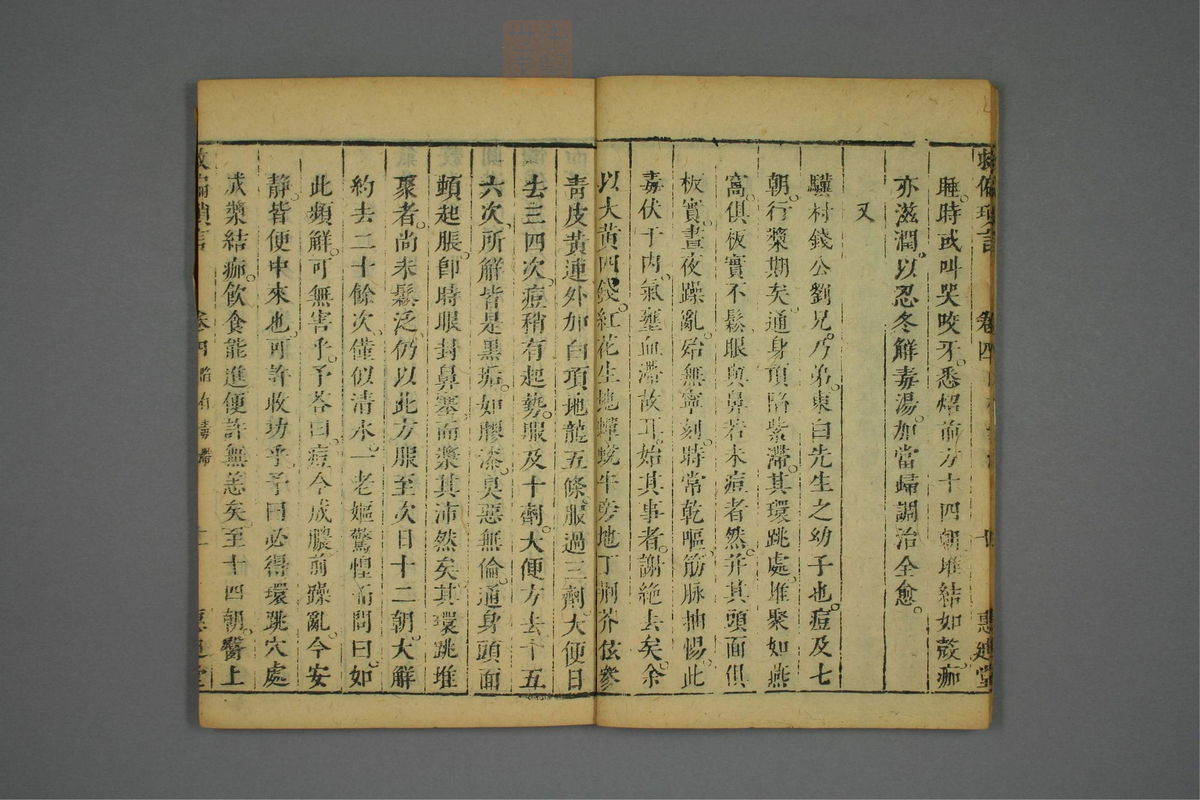 救偏瑣言 卷四 十 惠迪堂
睡。時或叫哭咬牙。悉炤前方十四朝堆結如殼。痂
亦滋潤。以忍冬解毒湯。加當歸調治全愈。
又
驥村錢公劉兄。乃弟。東白先生之幼子也。痘及七
朝。行漿期矣。通身頂陷紫滯。其環跳處。堆聚如燕
窩。俱板實不鬆。眼與鼻若未痘者然。并其頭面俱
板實。晝夜躁亂。殆無寧刻。時常乾嘔。筋脉抽惕。此
毒伏于內。氣壅血滯故耳。始其事者。謝絕去矣。余
以大黃四錢。紅花生地蟬蛻牛蒡地丁荊芥伭參
青皮黃連外加白項地龍五條。服過三劑。大便日
去三四次。痘稍有起勢。服及十劑。大便方去十五
六次。所解皆是黑垢。如膠漆。臭惡無倫。通身頭面
頓起脹。卽時眼封鼻塞。而漿其沛然矣。其環跳堆
聚者。尚未鬆泛。仍以此方服至次日十二朝。大解
約去二十餘次。僅似清水。一老嫗驚惶而問曰。如
此頻解。可無害乎。予答曰。痘今成膿。前躁亂。今安
靜。皆便中來也。可許收功乎。予曰。必得環跳穴處
成漿結痂。飲食能進。便許無恙矣。至十四朝。醫上
救偏瑣言 卷四 十一 惠迪堂